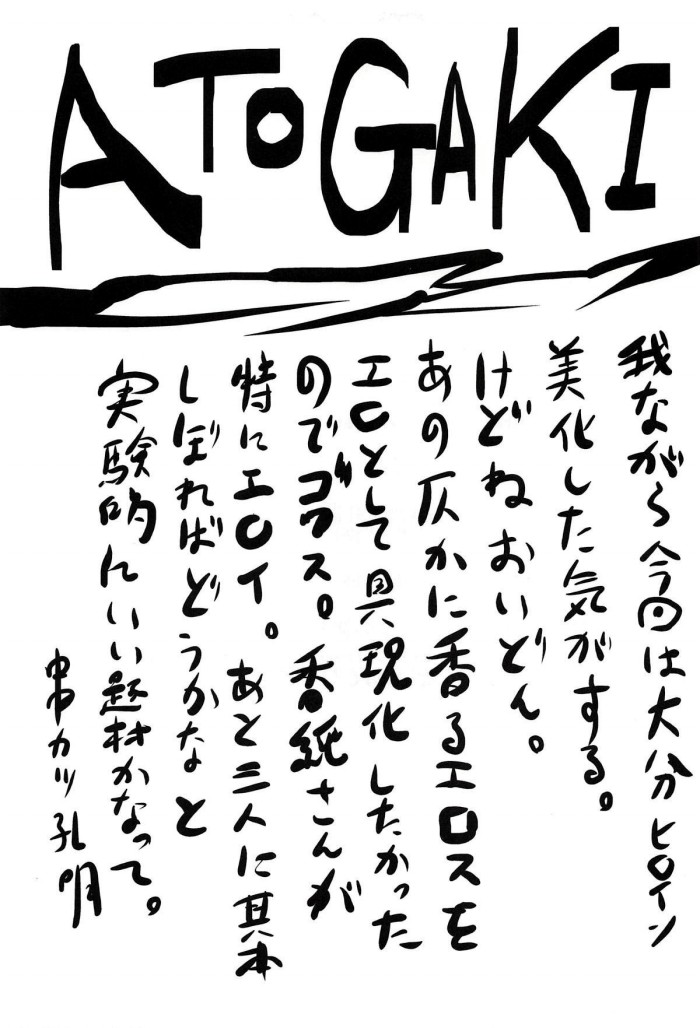 ATOGAKI
我ながら今回は大分ヒロイン
美化した気がする。
けどねおいどん。
あの仄かに香るエロスを
エロとして具現化したかった
のでゴワス。香織さんが
特にエロイ。あと三人に基本
しぼればどうかなと
実験的にいい題材かなって。
串カツ孔明